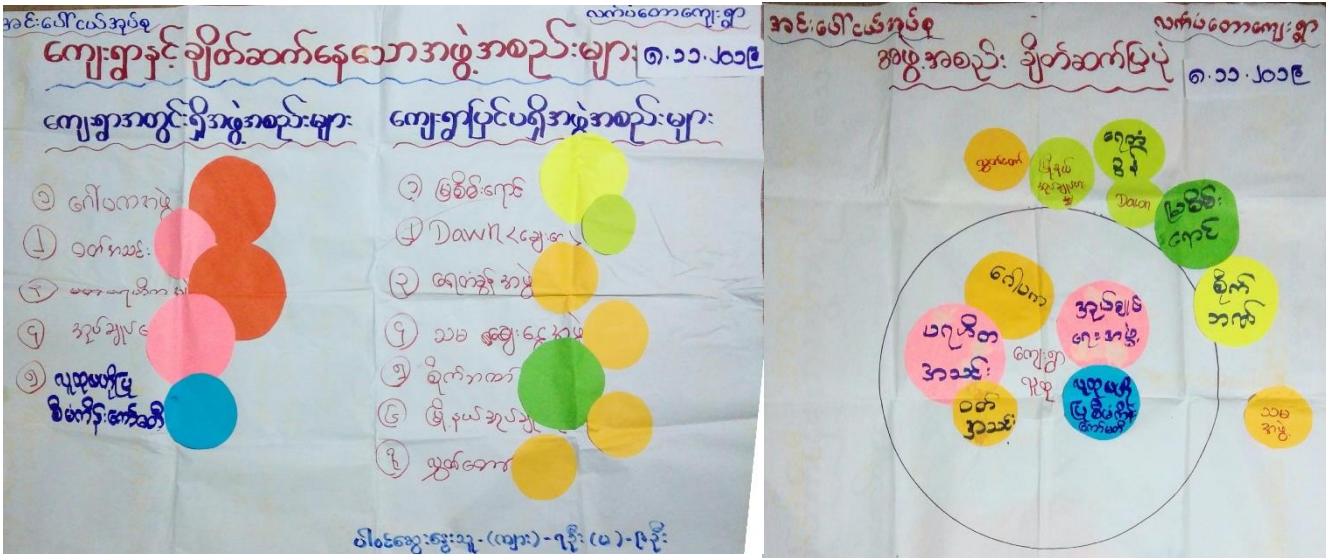 အင်းပေါ်ငယ်အုပ်စု
လက်ပံတောကျေးရွာ
ကျေးရွာနှင့် ချိတ်ဆက်နေသောအဖွဲ့အစည်းများ ၈.၁၁.၂၀၁၉
ကျေးရွာအတွင်းရှိအဖွဲ့အစည်းများ
၁ ဂေါပကအဖွဲ့
၂ ဝတ်အသင်း
၄ အုပ်ချုပ်
၅ လူထုဗဟိုပြု
စီမံကိန်းကော်မတီ
ကျေးရွာပြင်ပရှိအဖွဲ့အစည်းများ
၁ မြစိမ်းရောင်
၂ Dawn
၃ ရေတံခွန် အဖွဲ့
၄ သမ ချေးငွေအဖွဲ့
၅ စိုက်ဘဏ်
၆ မြို့နယ်အုပ်ချုပ်
၇ လွှတ်တော်
ပါဝင်ဆွေးနွေးသူ-(ကျား)-၇ဦး (မ)-၉ဦး
အင်းပေါ်ငယ်အုပ်စု
လက်ပံတောကျေးရွာ
အဖွဲ့အစည်း ချိတ်ဆက်ပြပုံ
၈.၁၁.၂၀၁၉
လွှတ်တော်
မြို့နယ်
ရေတံ
ခွန်
Dawn
မြစိမ်း
ရောင်
စိုက်
ဘဏ်
ဂေါပက
ပရဟိတ
အသင်း
အုပ်ချုပ်
ရေးအဖွဲ့
ကျေးရွာ
လူထု
ဝတ်
အသင်း
လူထုဗဟို
ပြုစီမံကိန်း
ကော်မတီ
သမ
အဖွဲ့